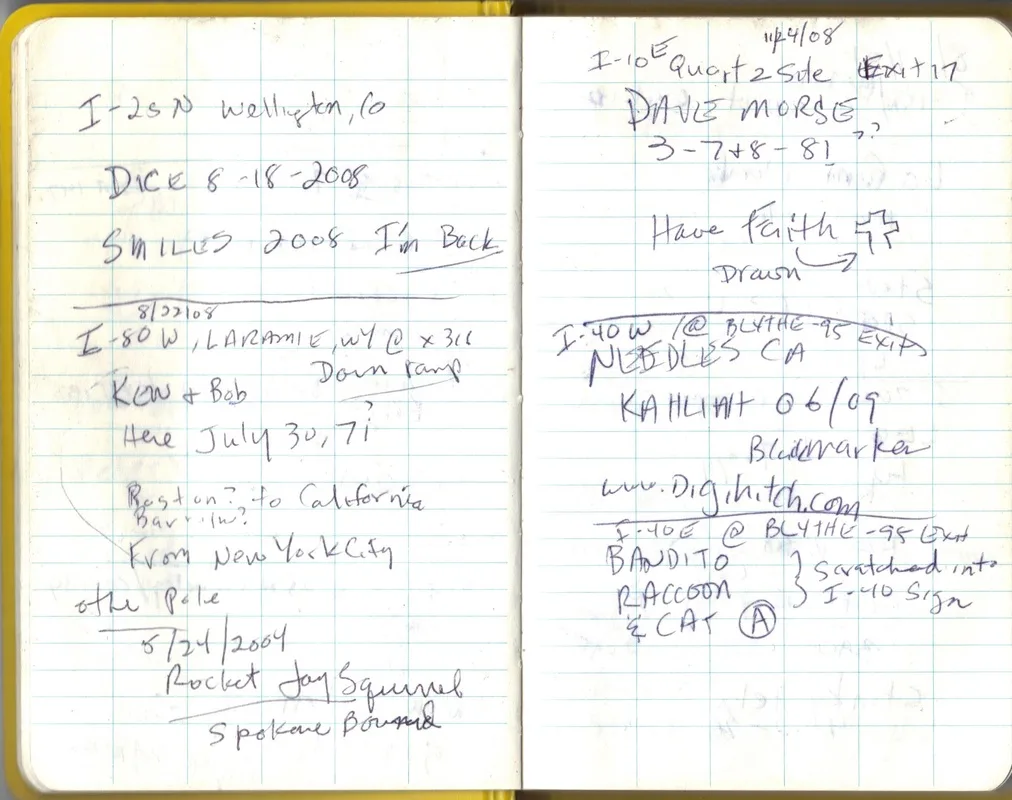 I-25 N Wellington, Co
DICE 8-18-2008
SMILES 2008 I'm Back
8/22/08
I-80 W, LARAMIE, WY @ x 311
Down ramp
KEN + Bob
Here July 30, 71
?
Boston? to California
From New York City
other Pole
5/24/2004
Rocket Jay Squirrel
Spokane Bound
11/24/08
I-10 E Quartzsite Exit 17
DAVE MORSE
3-7+8-81 ??
Have Faith
Drawn
I-40 W /@ BLYTHE-95 Exit
NEEDLES CA
KAHLIAH 06/09
Black marker
www.Digihitch.com
I-40 E @ BLYTHE-95 Exit
BANDITO
RACCOON
& CAT A
} Scratched into
I-40 Sign